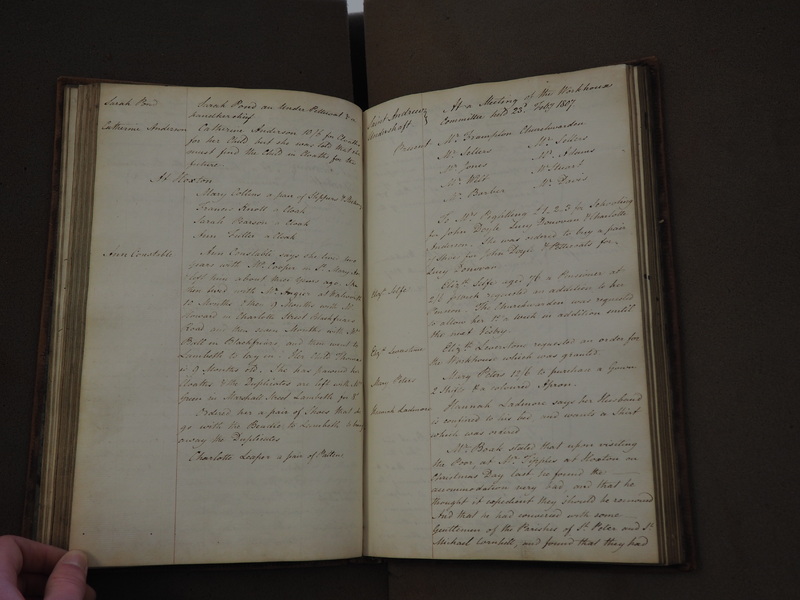 Sarah Pond
Sarah Pond an under Petticoat & a
handkerchief
Catherine Anderson
Catherine Anderson 10/6 for Cloaths
for her Child but she was told that she
must find the Child in Cloaths for the
future.
At Hoxton
Mary Collins a pair of Slippers &
Frances Knott a Cloak
Sarah Parsons a Cloak
Ann Fuller a Cloak
Ann Constable
Ann Constable says she lived two
years with Mr. Cooper in St. Mary Axe
left him about three years ago. She
then lived with Mr. at
10 Months & then 9 Months with Mr.
Howard in Charlotte Street Blackfriars
Road and then seven Months with Mr.
Ball in Blackfriars and then went to
Lambeth to lay in. Her Child Thomas
is 9 Months old. She has pawned her
Cloaths & the Duplicates are left with Mr.
Green in Marshall Street Lambeth for
Ordered her a pair of Shoes that
go with the Beadle to Lambeth to
away the Duplicates
Charlotte Leaper a pair of Patten
Saint Andrew
Undershaft
At a Meeting of the Workhouse
Committee held 23d. Feby 1807
Present
Mr. Frampton Churchwarden
Mr. Sellers Mr.
Mr. Jones Mr. Adams
Mr. West Mr. Stuart
Mr. Barber Mr. Davis
To Mrs. £1.2.3 for Schooling
for John Doyle Lucy Donovan & Charlotte
Anderson. She was ordered to buy a pair
of Shoes for John Doyle & Petticoats for
Lucy Donovan
Elizh. Selfe
Elizh. Selfe aged 76 a Pensioner at
2/6 P week requested an addition to her
Pension. The Churchwarden was requested
to allow her 1s. a week in addition until
the next Vestry.
Elizh. Leverstone
Elizh. Leverstone requested an order for
the Workhouse which was granted.
Mary Peters
Mary Peters 12/6 to purchase a Gown
2 Shifts & a coloured Apron.
Hannah Ladmore
Hannah Ladmore says her Husband
is confined to his bed and wants a Shirt
which was ordered
Mr. Boak stated that upon visiting
the Poor at Mr. Tipples at Hoxton on
Christmas Day last he found the
accommodation very bad and that he
thought it expedient they should be removed
And that he had conversed with some
Gentlemen of the Parishes of St. Peter and St.
Michael Cornhill, and found that they had